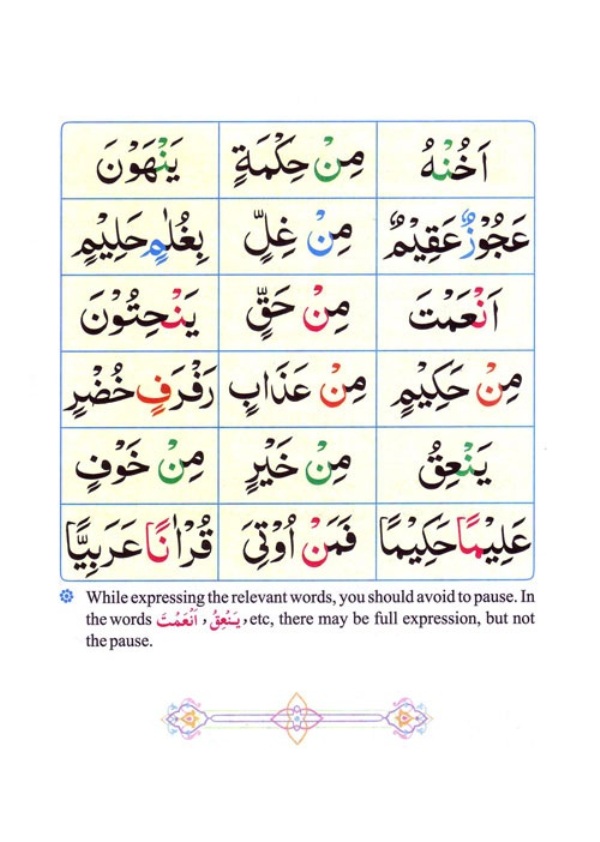 اَخُنْهُ مِنْ حِكْمَةٍ يَنْهَوْنَ
عَجُوْزٌ عَقِيْمٌ مِنْ غِلٍّ بِغُلٰمٍ حَلِيْمٍ
اَنْعَمْتَ مِنْ حَقٍّ يَنْحِتُوْنَ
مِنْ حَكِيْمٍ مِنْ عَذَابٍ رَفْرَفٍ خُضْرٍ
يَنْعِقُ مِنْ خَيْرٍ مِنْ خَوْفٍ
عَلِيْمًا حَكِيْمًا فَمَنْ اُوْتِىَ قُرْاٰنًا عَرَبِيًّا
While expressing the relevant words, you should avoid to pause. In
the words اَنْعَمْتَ , يَنْعِقُ , etc, there may be full expression, but not
the pause.